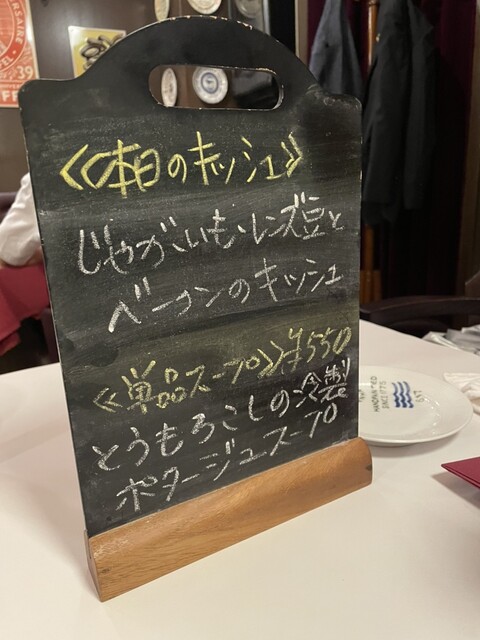 《本日のキッシュ》
じゃがいも・レンズ豆と
ベーコンのキッシュ
《単品スープ》¥550
とうもろこしの冷製
ポタージュスープ
ERSAIRE
39
HANDPAINTED
SINCE 1775